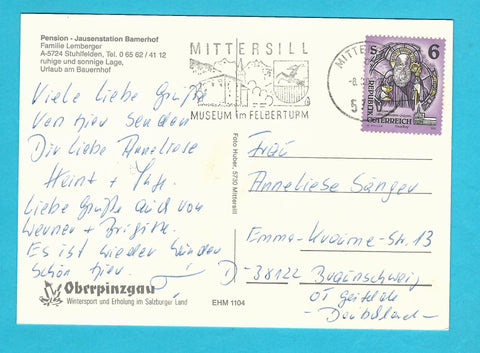 Pension - Jausenstation Bamerhof
Familie Lemberger
A-5724 Stuhlfelden, Tel. 0 65 62 / 41 12
ruhige und sonnige Lage,
Urlaub am Bauernhof
MITTERSILL
MUSEUM im FELBERTURM
MITTE
-8.
5
5 6
REPUBLIK
ÖSTERREICH
Viele liebe Grüße
von hier senden
Dir liebe Anneliese
Heint +
Liebe Grüße auch von
Werner + Brigitte.
Es ist wieder
schön hier.
Oberpinzgau
Wintersport und Erholung im Salzburger Land
EHM 1104
Foto Huber, 5730 Mittersill
Frau
Anneliese Sänger
Emma-Kraume-Str. 13
D-38122 Braunschweig
OT Geitelde
- Deutschland -